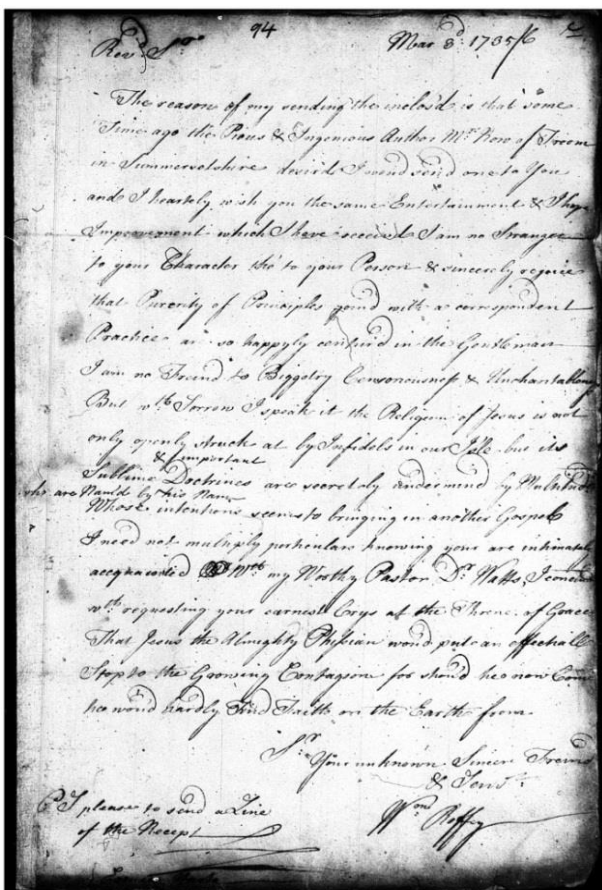 94
Revd. Sr.
Mar 3d. 1735/6
The reason of my sending the inclos'd is that some
Time ago the Pious & Ingenious Author Mr Row of Froom
in Summersetshire desird I woud send one to You
and I heartely wish you the same Entertainment & I hope
Improvement which I have receivd I am no Stranger
to your Character tho' to your Person & sincerely rejoice
that Purenty of Principles joind with a correspondent
Practice are so happyly centurd in the Gentleman
I am no Freind to Biggotry Censoriousness &
But wth. Sorrow I speak it the Religion of Jesus is not
only openly struck at by Infidels in our Isle but its
& important
Sublime Doctrines are secretely undermind by Multitudes
who are Nam'd by his Name
Whose intentions seems to bringing in another Gospel
I need not multiply perticulars knowing your are intimately
acquainted Wth. my Worthy Pastor Dr. Watts, I conclude
wth. requesting your earnest Crys at the Throne of Grace
That Jesus the Almighty Phisian woud put an effectuall
Stop to the Growing Contagion for shoud hee now Come
hee woud hardly find Faith on the Earth from
Sr.
Your unknown Sincere Freind
& Servt.
Wm. Roffey
P.S please to send a Line
of the Recept